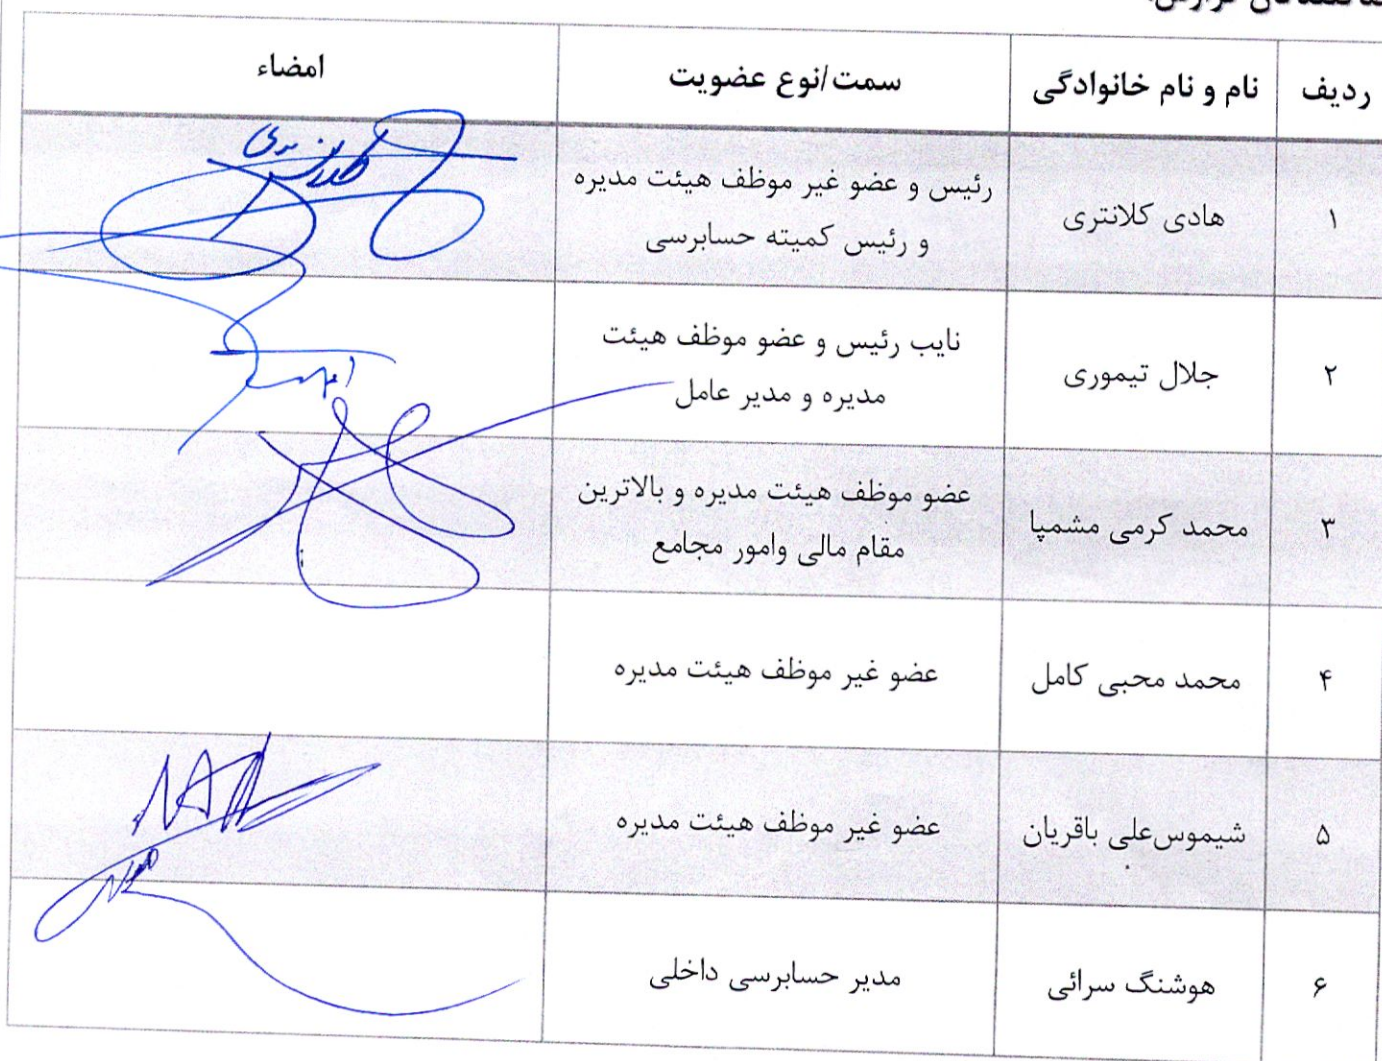 ردیف نام و نام خانوادگی سمت/نوع عضویت امضاء
۱ هادی کلانتری رئیس و عضو غیر موظف هیئت مدیره
و رئیس کمیته حسابرسی
۲ جلال تیموری نایب رئیس و عضو موظف هیئت
مدیره و مدیر عامل
۳ محمد کرمی مشمپا عضو موظف هیئت مدیره و بالاترین
مقام مالی وامور مجامع
۴ محمد محبی کامل عضو غیر موظف هیئت مدیره
۵ شیموس‌علی باقریان عضو غیر موظف هیئت مدیره
۶ هوشنگ سرائی مدیر حسابرسی داخلی